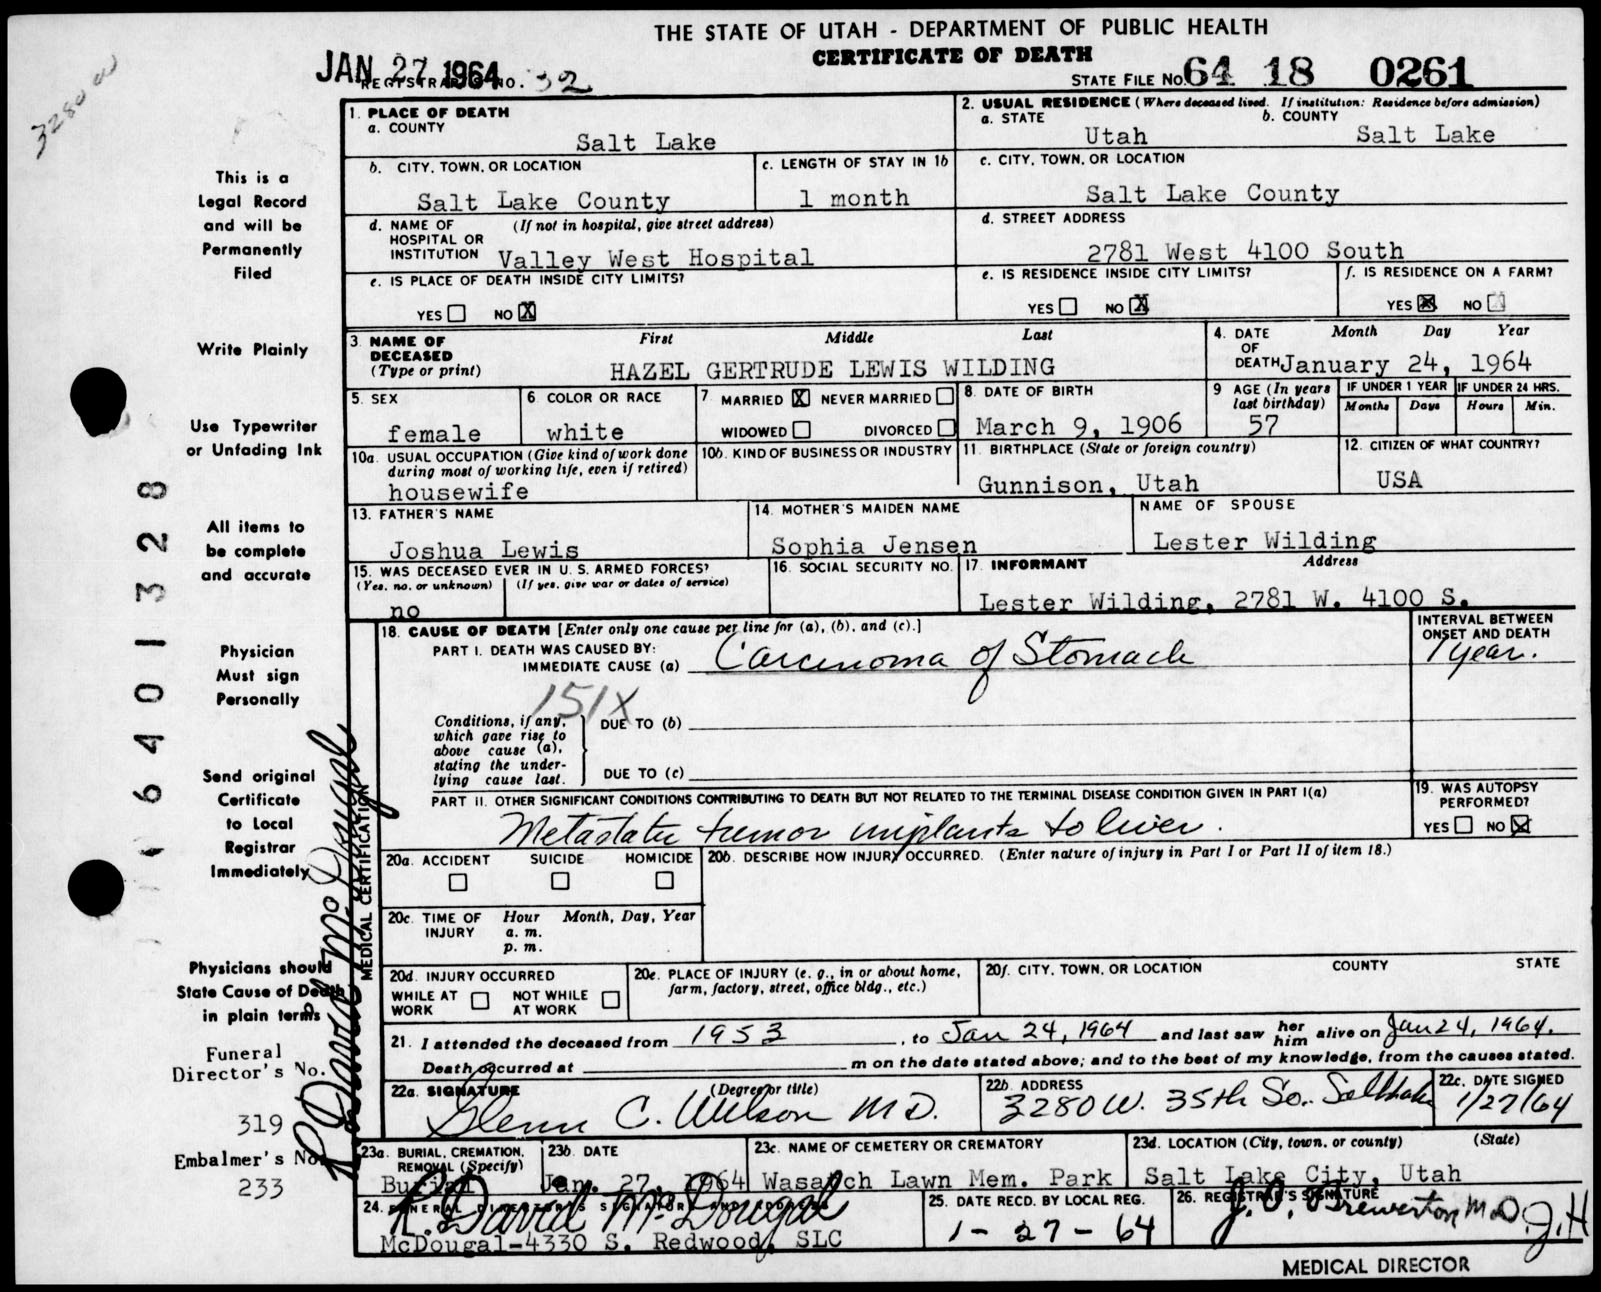 THE STATE OF UTAH - DEPARTMENT OF PUBLIC HEALTH
CERTIFICATE OF DEATH
JAN 27 1964
REGISTRAR'S NO. 32
STATE FILE NO. 64 18 0261
3280 W
This is a
Legal Record
and will be
Permanently
Filed
Write Plainly
Use Typewriter
or Unfading Ink
All items to
be complete
and accurate
Physician
Must sign
Personally
Send original
Certificate
to Local
Registrar
Immediately
Physicians should
State Cause of Death
in plain terms
Funeral
Director's No.
319
Embalmer's No.
233
6401328
R. David McDougal
MEDICAL CERTIFICATION
1. PLACE OF DEATH
a. COUNTY
Salt Lake
2. USUAL RESIDENCE (Where deceased lived. If institution: Residence before admission)
a. STATE b. COUNTY
Utah Salt Lake
b. CITY, TOWN, OR LOCATION
Salt Lake County
c. LENGTH OF STAY IN 1b
1 month
c. CITY, TOWN, OR LOCATION
Salt Lake County
d. NAME OF (If not in hospital, give street address)
HOSPITAL OR
INSTITUTION Valley West Hospital
d. STREET ADDRESS
2781 West 4100 South
e. IS PLACE OF DEATH INSIDE CITY LIMITS?
YES NO X
e. IS RESIDENCE INSIDE CITY LIMITS?
YES NO X
f. IS RESIDENCE ON A FARM?
YES X NO X
3. NAME OF First Middle Last
DECEASED
(Type or print) HAZEL GERTRUDE LEWIS WILDING
4. DATE Month Day Year
OF
DEATH January 24, 1964
5. SEX
female
6. COLOR OR RACE
white
7. MARRIED X NEVER MARRIED
WIDOWED DIVORCED
8. DATE OF BIRTH
March 9, 1906
9 AGE (In years
last birthday)
57
IF UNDER 1 YEAR IF UNDER 24 HRS.
Months Days Hours Min.
10a. USUAL OCCUPATION (Give kind of work done
during most of working life, even if retired)
housewife
10b. KIND OF BUSINESS OR INDUSTRY
11. BIRTHPLACE (State or foreign country)
Gunnison, Utah
12. CITIZEN OF WHAT COUNTRY?
USA
13. FATHER'S NAME
Joshua Lewis
14. MOTHER'S MAIDEN NAME
Sophia Jensen
NAME OF SPOUSE
Lester Wilding
15. WAS DECEASED EVER IN U. S. ARMED FORCES?
(Yes, no, or unknown) (If yes, give war or dates of service)
no
16. SOCIAL SECURITY NO.
17. INFORMANT Address
Lester Wilding, 2781 W. 4100 S.
18. CAUSE OF DEATH [Enter only one cause per line for (a), (b), and (c).]
INTERVAL BETWEEN
ONSET AND DEATH
PART I. DEATH WAS CAUSED BY:
IMMEDIATE CAUSE (a) Carcinoma of Stomach 1 year.
151X
Conditions, if any,
which gave rise to
above cause (a),
stating the under-
lying cause last.
DUE TO (b)
DUE TO (c)
PART II. OTHER SIGNIFICANT CONDITIONS CONTRIBUTING TO DEATH BUT NOT RELATED TO THE TERMINAL DISEASE CONDITION GIVEN IN PART I(a)
Metastatic tumor implants to liver.
19. WAS AUTOPSY
PERFORMED?
YES NO X
20a. ACCIDENT SUICIDE HOMICIDE
20b. DESCRIBE HOW INJURY OCCURRED. (Enter nature of injury in Part I or Part II of item 18.)
20c. TIME OF Hour Month, Day, Year
INJURY a. m.
p. m.
20d. INJURY OCCURRED
WHILE AT NOT WHILE
WORK AT WORK
20e. PLACE OF INJURY (e. g., in or about home,
farm, factory, street, office bldg., etc.)
20f. CITY, TOWN, OR LOCATION COUNTY STATE
21. I attended the deceased from 1953, to Jan 24, 1964 and last saw her him alive on Jan 24, 1964.
Death occurred at m on the date stated above; and to the best of my knowledge, from the causes stated.
22a. SIGNATURE (Degree or title)
Glenn C. Wilson MD.
22b. ADDRESS
3280 W. 35th So. Salt Lake
22c. DATE SIGNED
1/27/64
23a. BURIAL, CREMATION,
REMOVAL (Specify)
Burial
23b. DATE
Jan. 27, 1964
23c. NAME OF CEMETERY OR CREMATORY
Wasatch Lawn Mem. Park
23d. LOCATION (City, town, or county) (State)
Salt Lake City, Utah
24. FUNERAL DIRECTOR'S SIGNATURE AND ADDRESS
R. David McDougal
McDougal-4330 S. Redwood, SLC
25. DATE RECD. BY LOCAL REG.
1-27-64
26. REGISTRAR'S SIGNATURE
J. O. Brewerton M.D. J.H
MEDICAL DIRECTOR